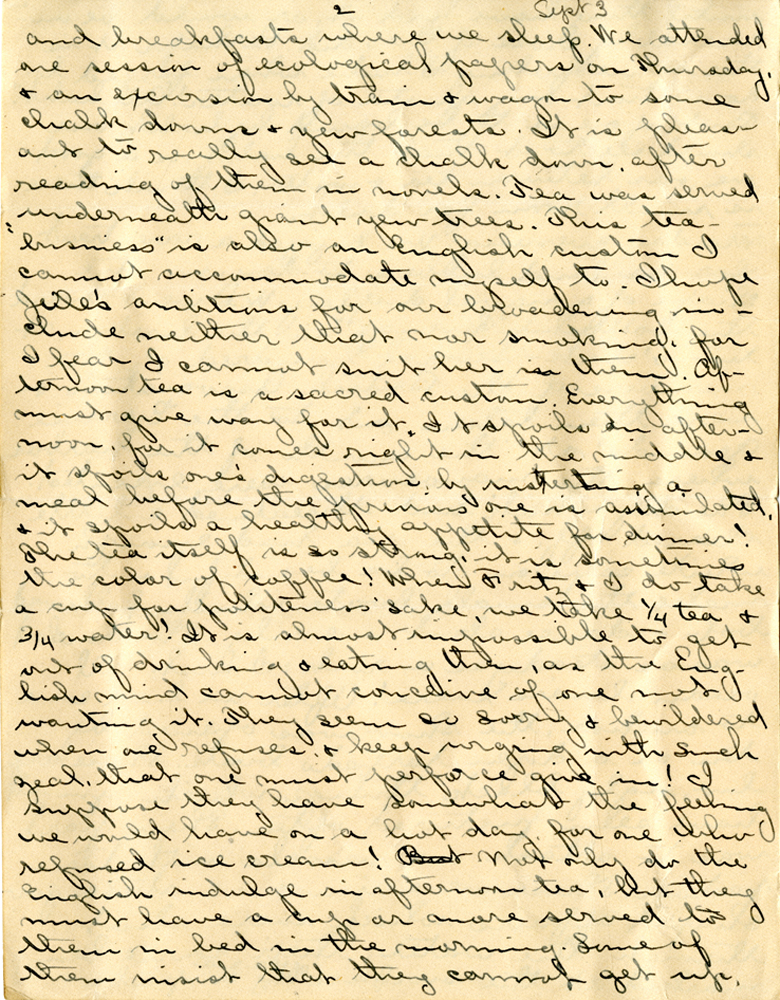 2 Sept 3
and breakfasts where we sleep. We attended
one session of ecological papers on Thursday,
& an excursion by train & wagon to some
chalk downs & yew forests. It is pleas-
ant to really see a chalk down, after
reading of them in novels. Tea was served
underneath giant yew trees. This tea-
"business" is also an English custom I
cannot accommodate myself to. I hope
ambitions for our broadening in-
clude neither that nor smoking, for
I fear I cannot suit her in them. Af-
ternoon tea is a sacred custom. Everything
must give way for it. It spoils an after-
noon, for it comes right in the middle &
it spoils one's digestion by a
meal before the previous one is assimilated,
& it spoils a healthy appetite for dinner!
The tea itself is so strong, it is sometimes
the color of coffee! When Fritz & I do take
a cup for politeness' sake, we take 1/4 tea &
3/4 water! It is almost impossible to get
out of drinking & eating then, as the Eng-
lish mind cannot conceive of one not
wanting it. They seem so sorry & bewildered
when one refuses, & keep urging with such
zeal, that one must perforce give in! I
suppose they have somewhat the feeling
we would have on a hot day, for one who
refused ice cream! But Not only do the
English indulge in afternoon tea, but they
must have a cup or more served to
them in bed in the morning. Some of
them insist that they cannot get up,